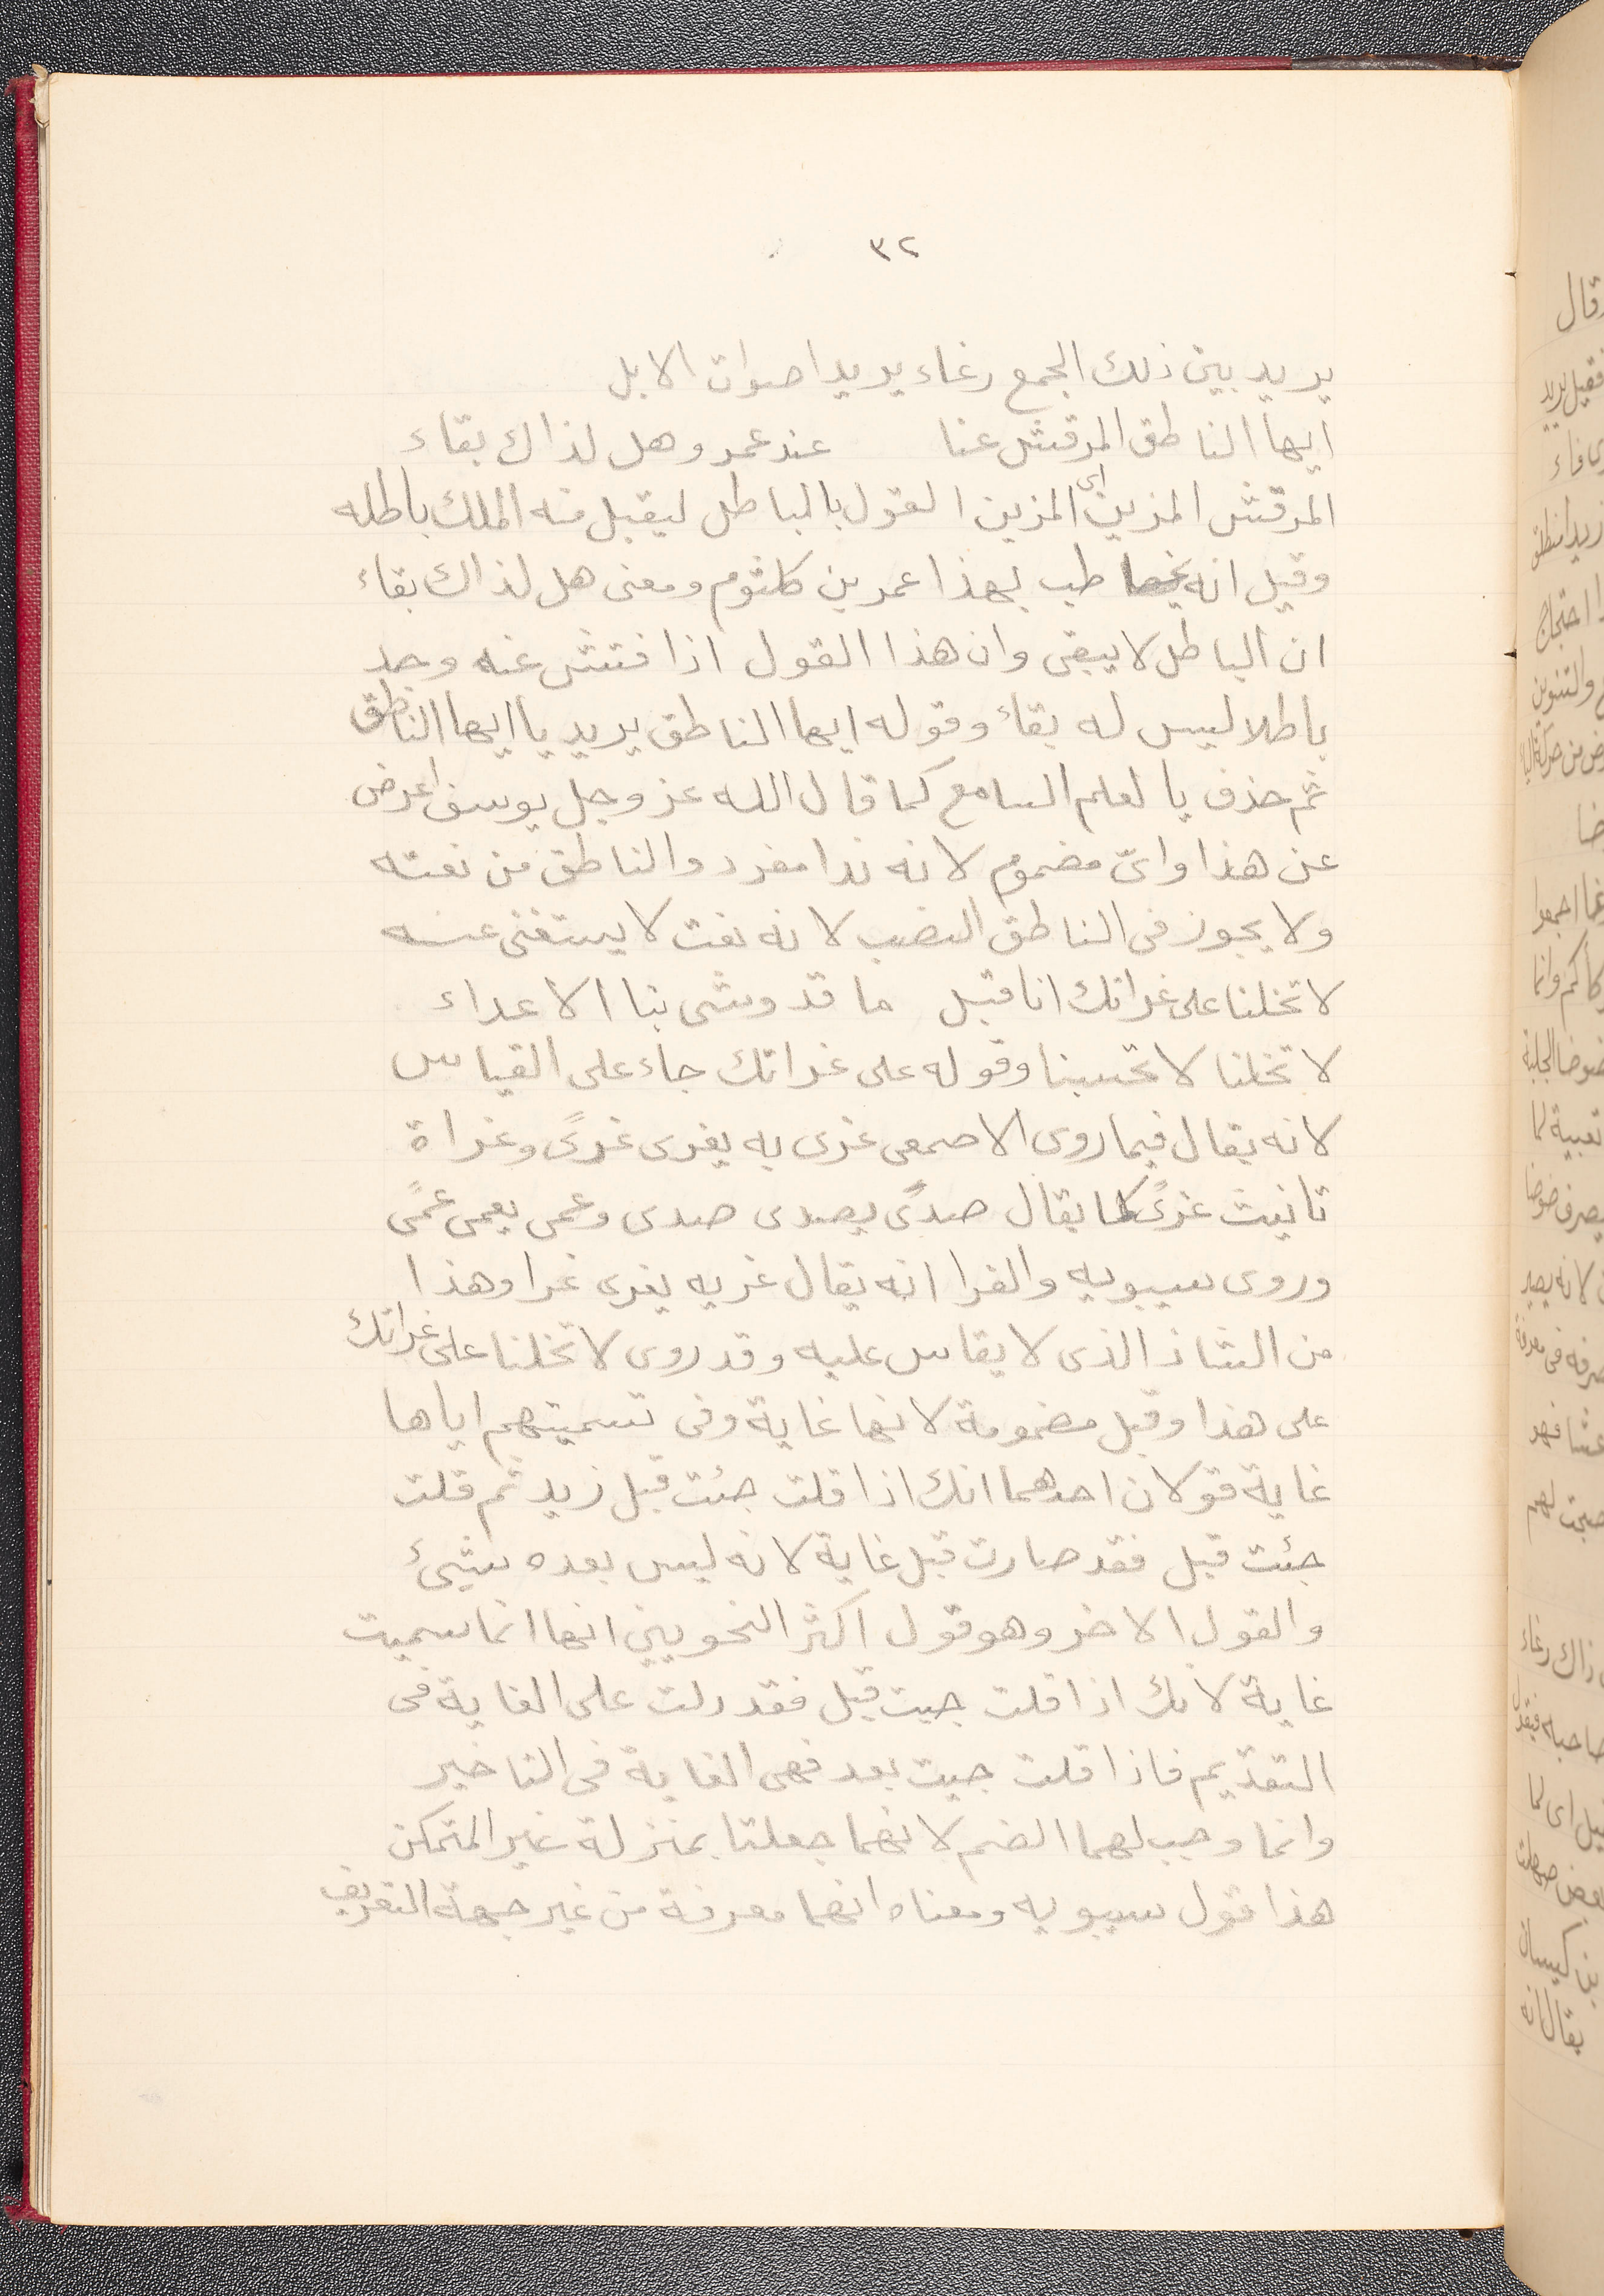 ٣٢
يريد بين ذلك الجمع رغاء يريد اصوات الابل
ايها الناطق المرقش عنا عند عمرو هل لذاك بقاء
المرقش المزين اى المزين القول بالباطل ليقبل منه الملك باطله
وقيل انه يخاطب بهذا عمر بن كلثوم ومعنى هل لذاك بقاء
ان الباطل لا يبقى وان هذا القول اذا فتش عنه وجد
باطلا ليس له بقاء وقوله ايها الناطق يريد يا ايها الناطق
ثم حذف يا لعلم السامع كما قال الله عز وجل يوسف اعرض
عن هذا واىّ مضموم لانه ندا مفرد والناطق من نعته
ولا يجوز فى الناطق النصب لانه نعت لا يستغنى عنه
لا تخلنا على غراتك انا قبل ما قد وشى بنا الاعداء
لا تخلنا لا تحسبنا وقوله على غراتك جاء على القياس
لانه يقال فيما روى الاصمعى غرى به يغرى غرىً وغراة
تانيث غرىً كما يقال صدىً يصدى صدى وعمى يعمى عمىً
وروى سيبويه والفرا انه يقال غريه يغرى غرا وهذا
من الشاذ الذى لا يقاس عليه وقد روى لا تخلنا على غراتك
على هذا وقبل مضمومة لانها غاية وفى تسميتهم اياها
غاية قولان احدهما انك اذا قلت جئت قبل زيد ثم قلت
جئت قبل فقد صارت قبل غاية لانه ليس بعده شيئ
والقول الاخر وهو قول اكثر النحويين انها انما سميت
غاية لانك اذا قلت جيت قبل فقد دلت على الغاية فى
التقديم فاذا قلت جيت بعد فهى الغاية فى التاخير
وانما وجب لهما الضم لانهما جعلتا بمنزلة غير المتمكن
هذا قول سيبويه ومعناه انهما معرفة من غير جهة التعريف